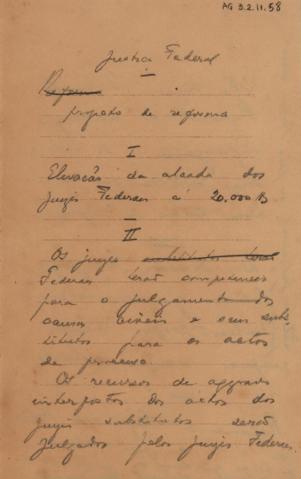 AG 3.2.11.58
Justiça Federal
Reforma
projecto de reforma
I
Elevação da alçada dos
juizes Federaes á 20.000 $
II
Os juizes substitutos terão
Federaes terão competencia
para o julgamento dos
causas civeis e seus subs-
titutos para os actos
de processo.
Os recursos de aggravo
interpostos dos actos dos
juizes substitutos serão
julgados pelos juizes Federaes.